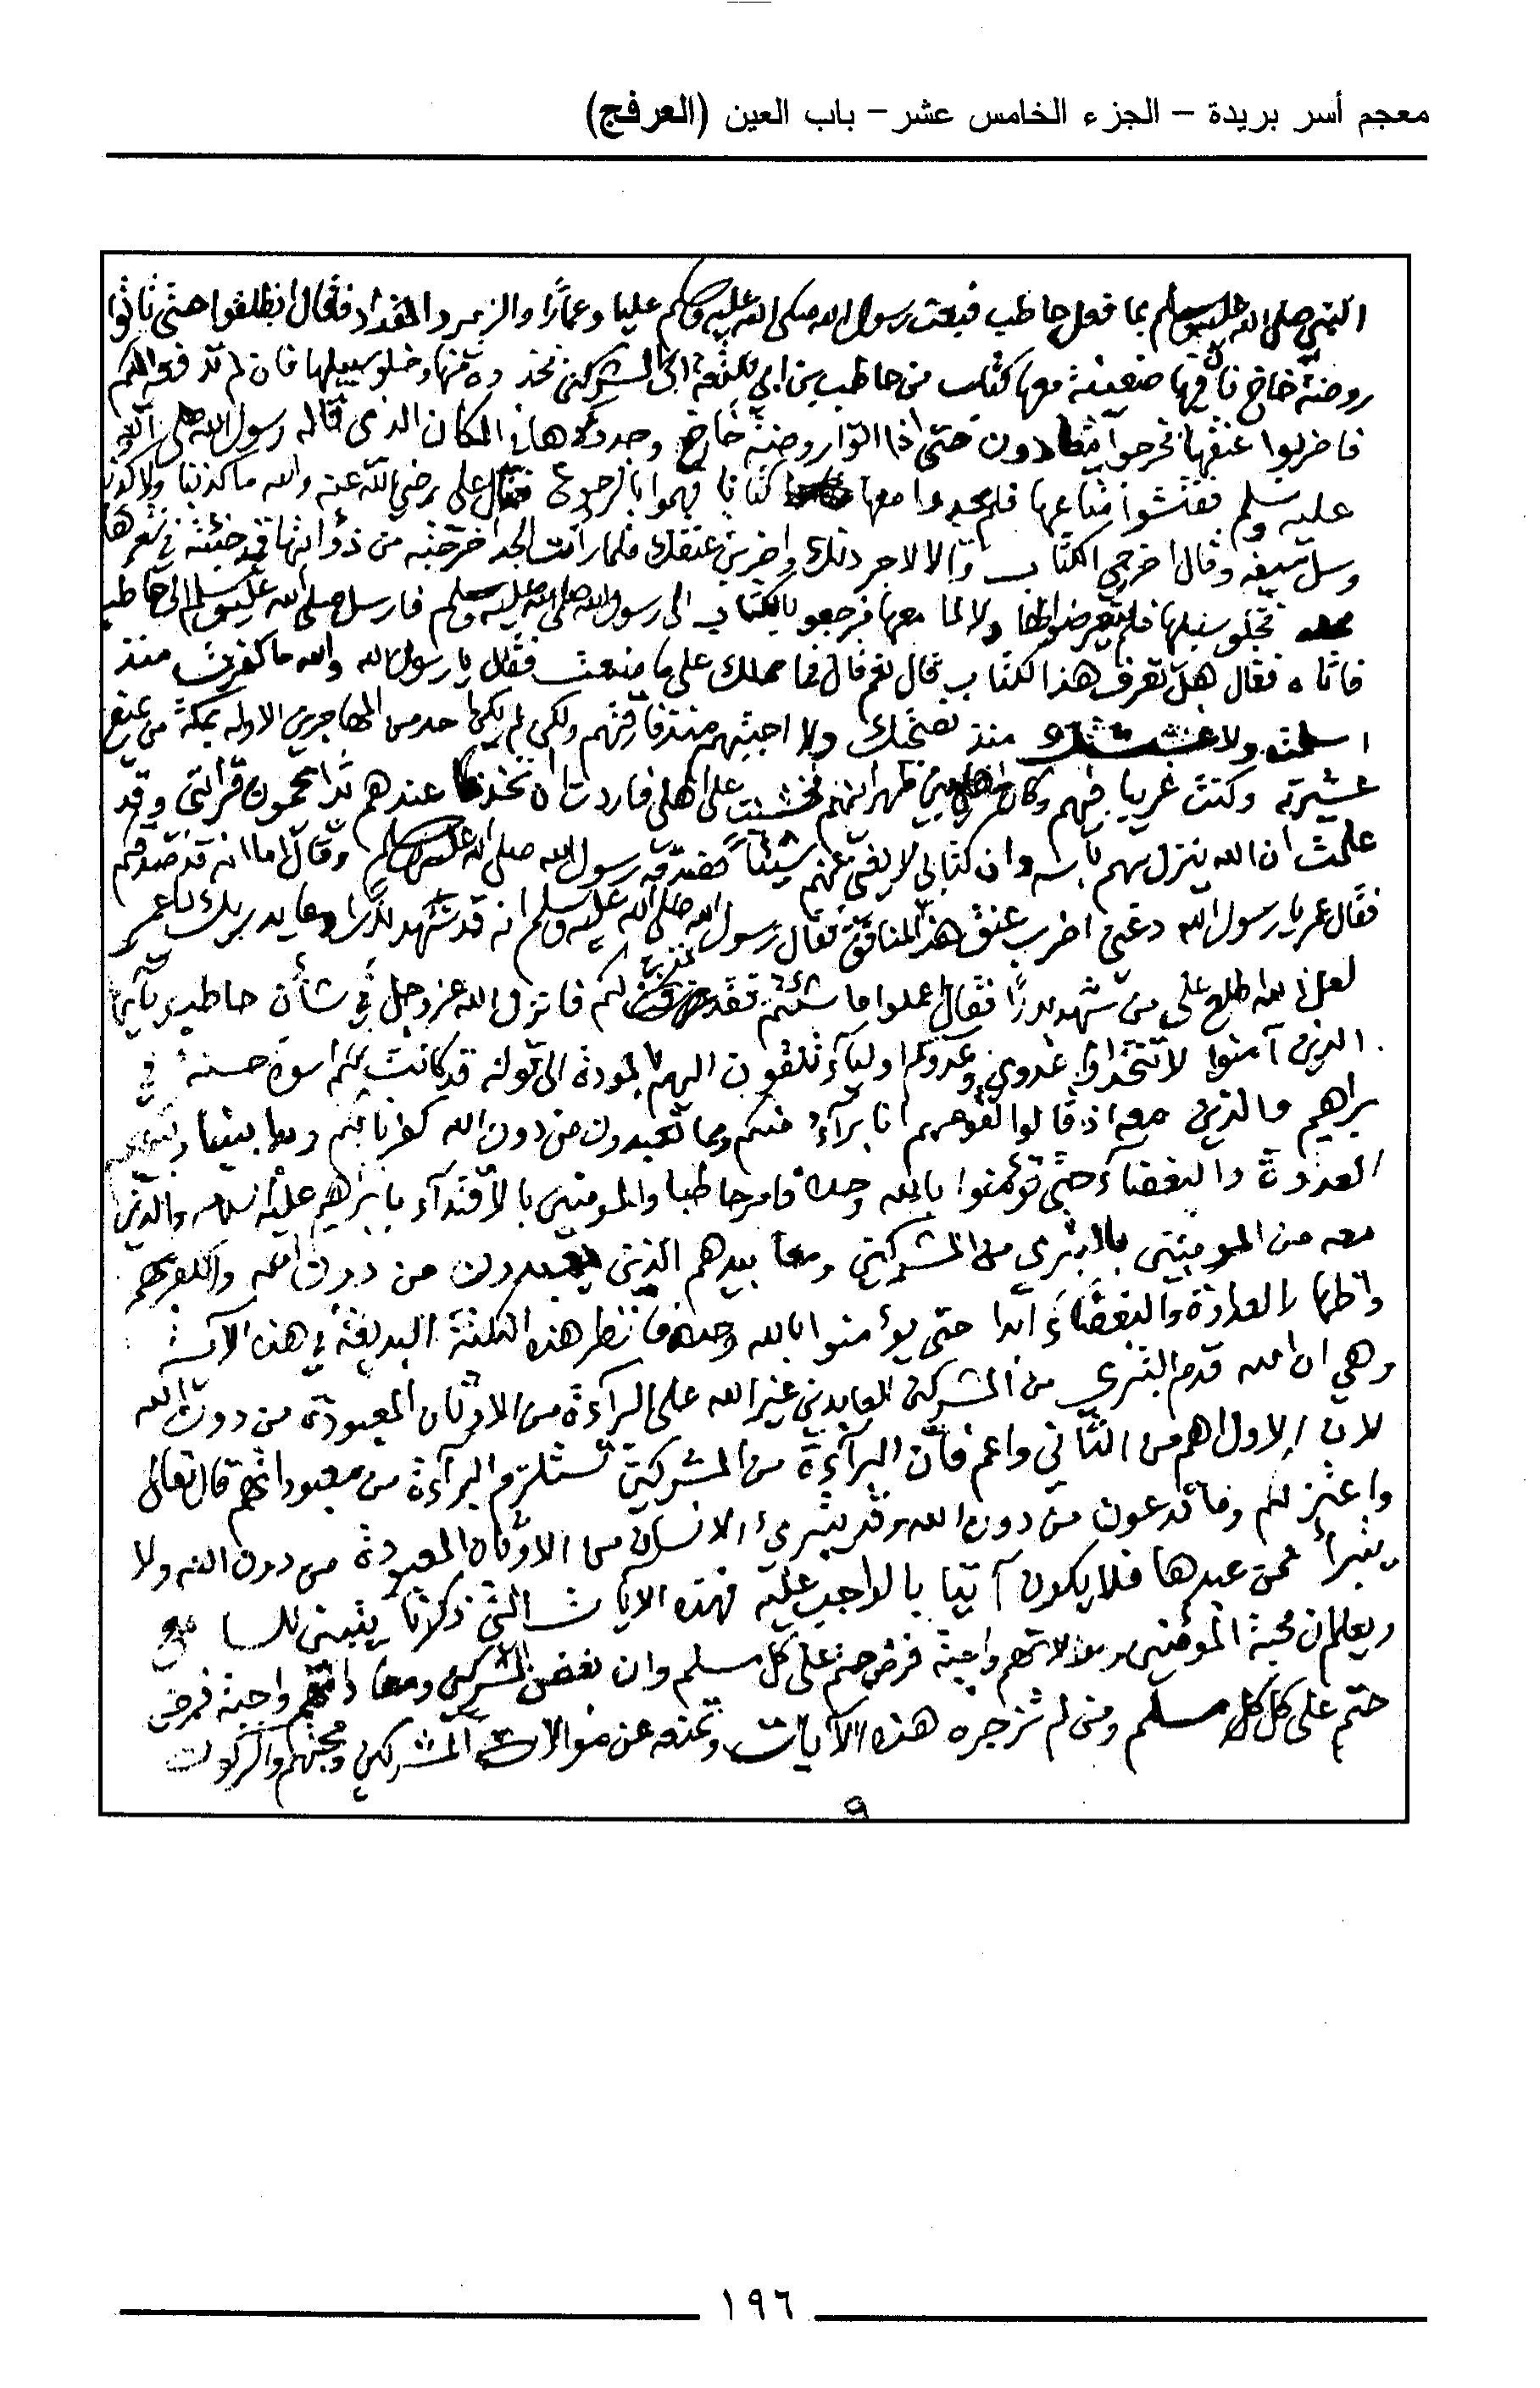 معجم أسر بريدة – الجزء الخامس عشر – باب العين (العرفج)
النبي صلى الله عليه وسلم بما فعل حاطب فبعث رسول الله صلى الله عليه وسلم عليا وعمارًا والزبير والمقداد فقال انطلقوا حتى تاتوا
روضة خاخ فان فيها ضعينة معها كتاب من حاطب بن ابي بلتعة الى المشركين فخذوه منها وخلو سبيلها فان لم تدفعه اليكم
فاضربوا عنقها فخرجوا حتى اذا اتوا روضة خاخ وجدوها في المكان الذي قاله رسول الله صلى الله
عليه وسلم ففتشوا متاعها فلم يجدوا معها كتابا فهموا بالرجوع فقال علي رضي الله عنه والله ما كذبنا ولا كذبنا
وسل سيفه وقال اخرجي الكتاب والا لاجردنك ولاضربن عنقك فلما رأت الجد اخرجته من ذؤابتها قد خبئته في شعرها
فخلو سبيلها فلم يتعرضوا لها ولا لما معها فرجعو بالكتاب الى رسول الله صلى الله عليه وسلم فارسل صلى الله عليه وسلم الى حاطب
فاتاه فقال هل تعرف هذا الكتاب قال نعم قال فما حملك على ما صنعت فقال يا رسول الله والله ما كفرت منذ
اسلمت ولا غششتك منذ نصحتك ولا احببتهم منذ فارقتهم ولكن لم يكن احد من المهاجرين الاوله بمكة من يمنع
عشيرته وكنت غريبا فيهم وكان اهلي بين ظهرانيهم فخشيت على اهلي فاردت ان اتخذ عندهم يدا يحمون قرابتي وقد
علمت ان الله ينزل بهم باسه وان كتابي لا يغني عنهم شيئاً فصدقه رسول الله صلى الله عليه وسلم وقال اما انه قد صدقكم
فقال عمر يا رسول الله دعني اضرب عنق هذا المنافق فقال رسول الله صلى الله عليه وسلم انه قد شهد بدرًا وما يدريك يا عمر
لعل الله اطلع على من شهد بدرًا فقال اعملوا ما شئتم فقد غفرت لكم فانزل الله عز وجل في شأن حاطب يا أيها
الذين آمنوا لا تتخذوا عدوي وعدوكم اولياء تلقون اليهم بالمودة الى قوله قد كانت لكم اسوة حسنة في
براهيم والذين معه اذ قالوا لقومهم انا برآء منكم ومما تعبدون من دون الله كفرنا بكم وبدا بيننا وبينكم
العدوة والبغضاء حتى تؤمنوا بالله وحده فامر حاطبا والمومنين بالاقتدآء بابراهيم عليه السلام والذين
معه من المومنين بالتبري من المشركين ومعابيدهم الذين يعبدون من دون الله والكفر بهم
واظهار العداوة والبغضاء ابدا حتى يؤمنوا بالله وحده فانظر هذه النكتة البديعة في هذه الآية
وهي ان الله قدم التبري من المشركين العابدين غير الله على البرآءة من الاوثان المعبودة من دون الله
لان الاول اهم من الثاني واعم فان البرآءة من المشركين تستلزم البرآءة من معبوداتهم قال تعالى
واعتزلكم وما تدعون من دون الله وقد يتبريء الانسان من الاوثان المعبودة من دون الله ولا
يتبرأ ممن عبدها فلا يكون آتيا بالواجب عليه فهذه الايات التي ذكرنا يتبين للسامع
ويعلم ان محبة المؤمنين وموالاتهم واجبة فرض حتم على كل مسلم وان بغض المشركين ومعاداتهم واجبة فرض
حتم على كل كل مسلم ومن لم تزجره هذه الآيات وتمنعه عن موالات المشركين ومحبتهم والركون
٩
١٩٦